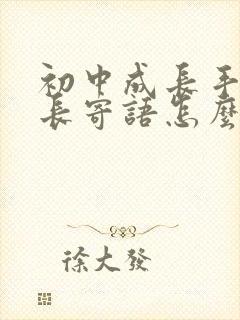 初中成長手
長寄語怎麼
徐大發